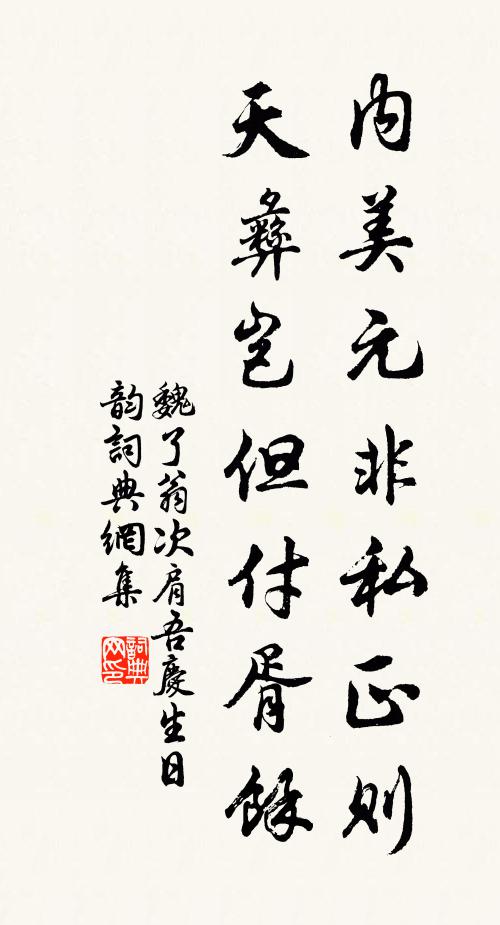 內美元非私正則
天彝豈但付胥餘
魏了翁次肩吾慶生日
韵詞典網集
詞典網印